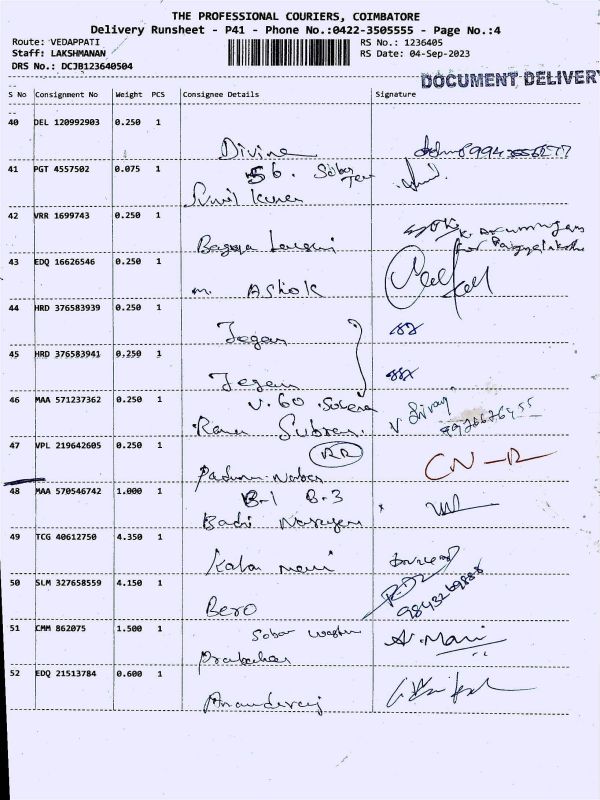 THE PROFESSIONAL COURIERS, COIMBATORE
Delivery Runsheet - P41 - Phone No.:0422-3505555 - Page No.:4
Route: VEDAPPATI RS No.: 1236405
Staff: LAKSHMANAN RS Date: 04-Sep-2023
DRS No.: DCJB123640504
DOCUMENT DELIVERY
S No Consignment No Weight PCS Consignee Details Signature
40 DEL 120992903 0.250 1
Divine
41 PGT 4557502 0.075 1
56.
Sunil Kumar
42 VRR 1699743 0.250 1
43 EDQ 16626546 0.250 1
m. Ashok
44 HRD 376583939 0.250 1
Jegan
45 HRD 376583941 0.250 1
Jegan
46 MAA 571237362 0.250 1
V. 60
47 VPL 219642605 0.250 1
RR
CN-R
48 MAA 570546742 1.000 1
B-1 B-3
Badri
49 TCG 40612750 4.350 1
Kala mani
50 SLM 327658559 4.150 1
Bero
51 CMM 862075 1.500 1
A. Mani
52 EDQ 21513784 0.600 1
Anandaraj